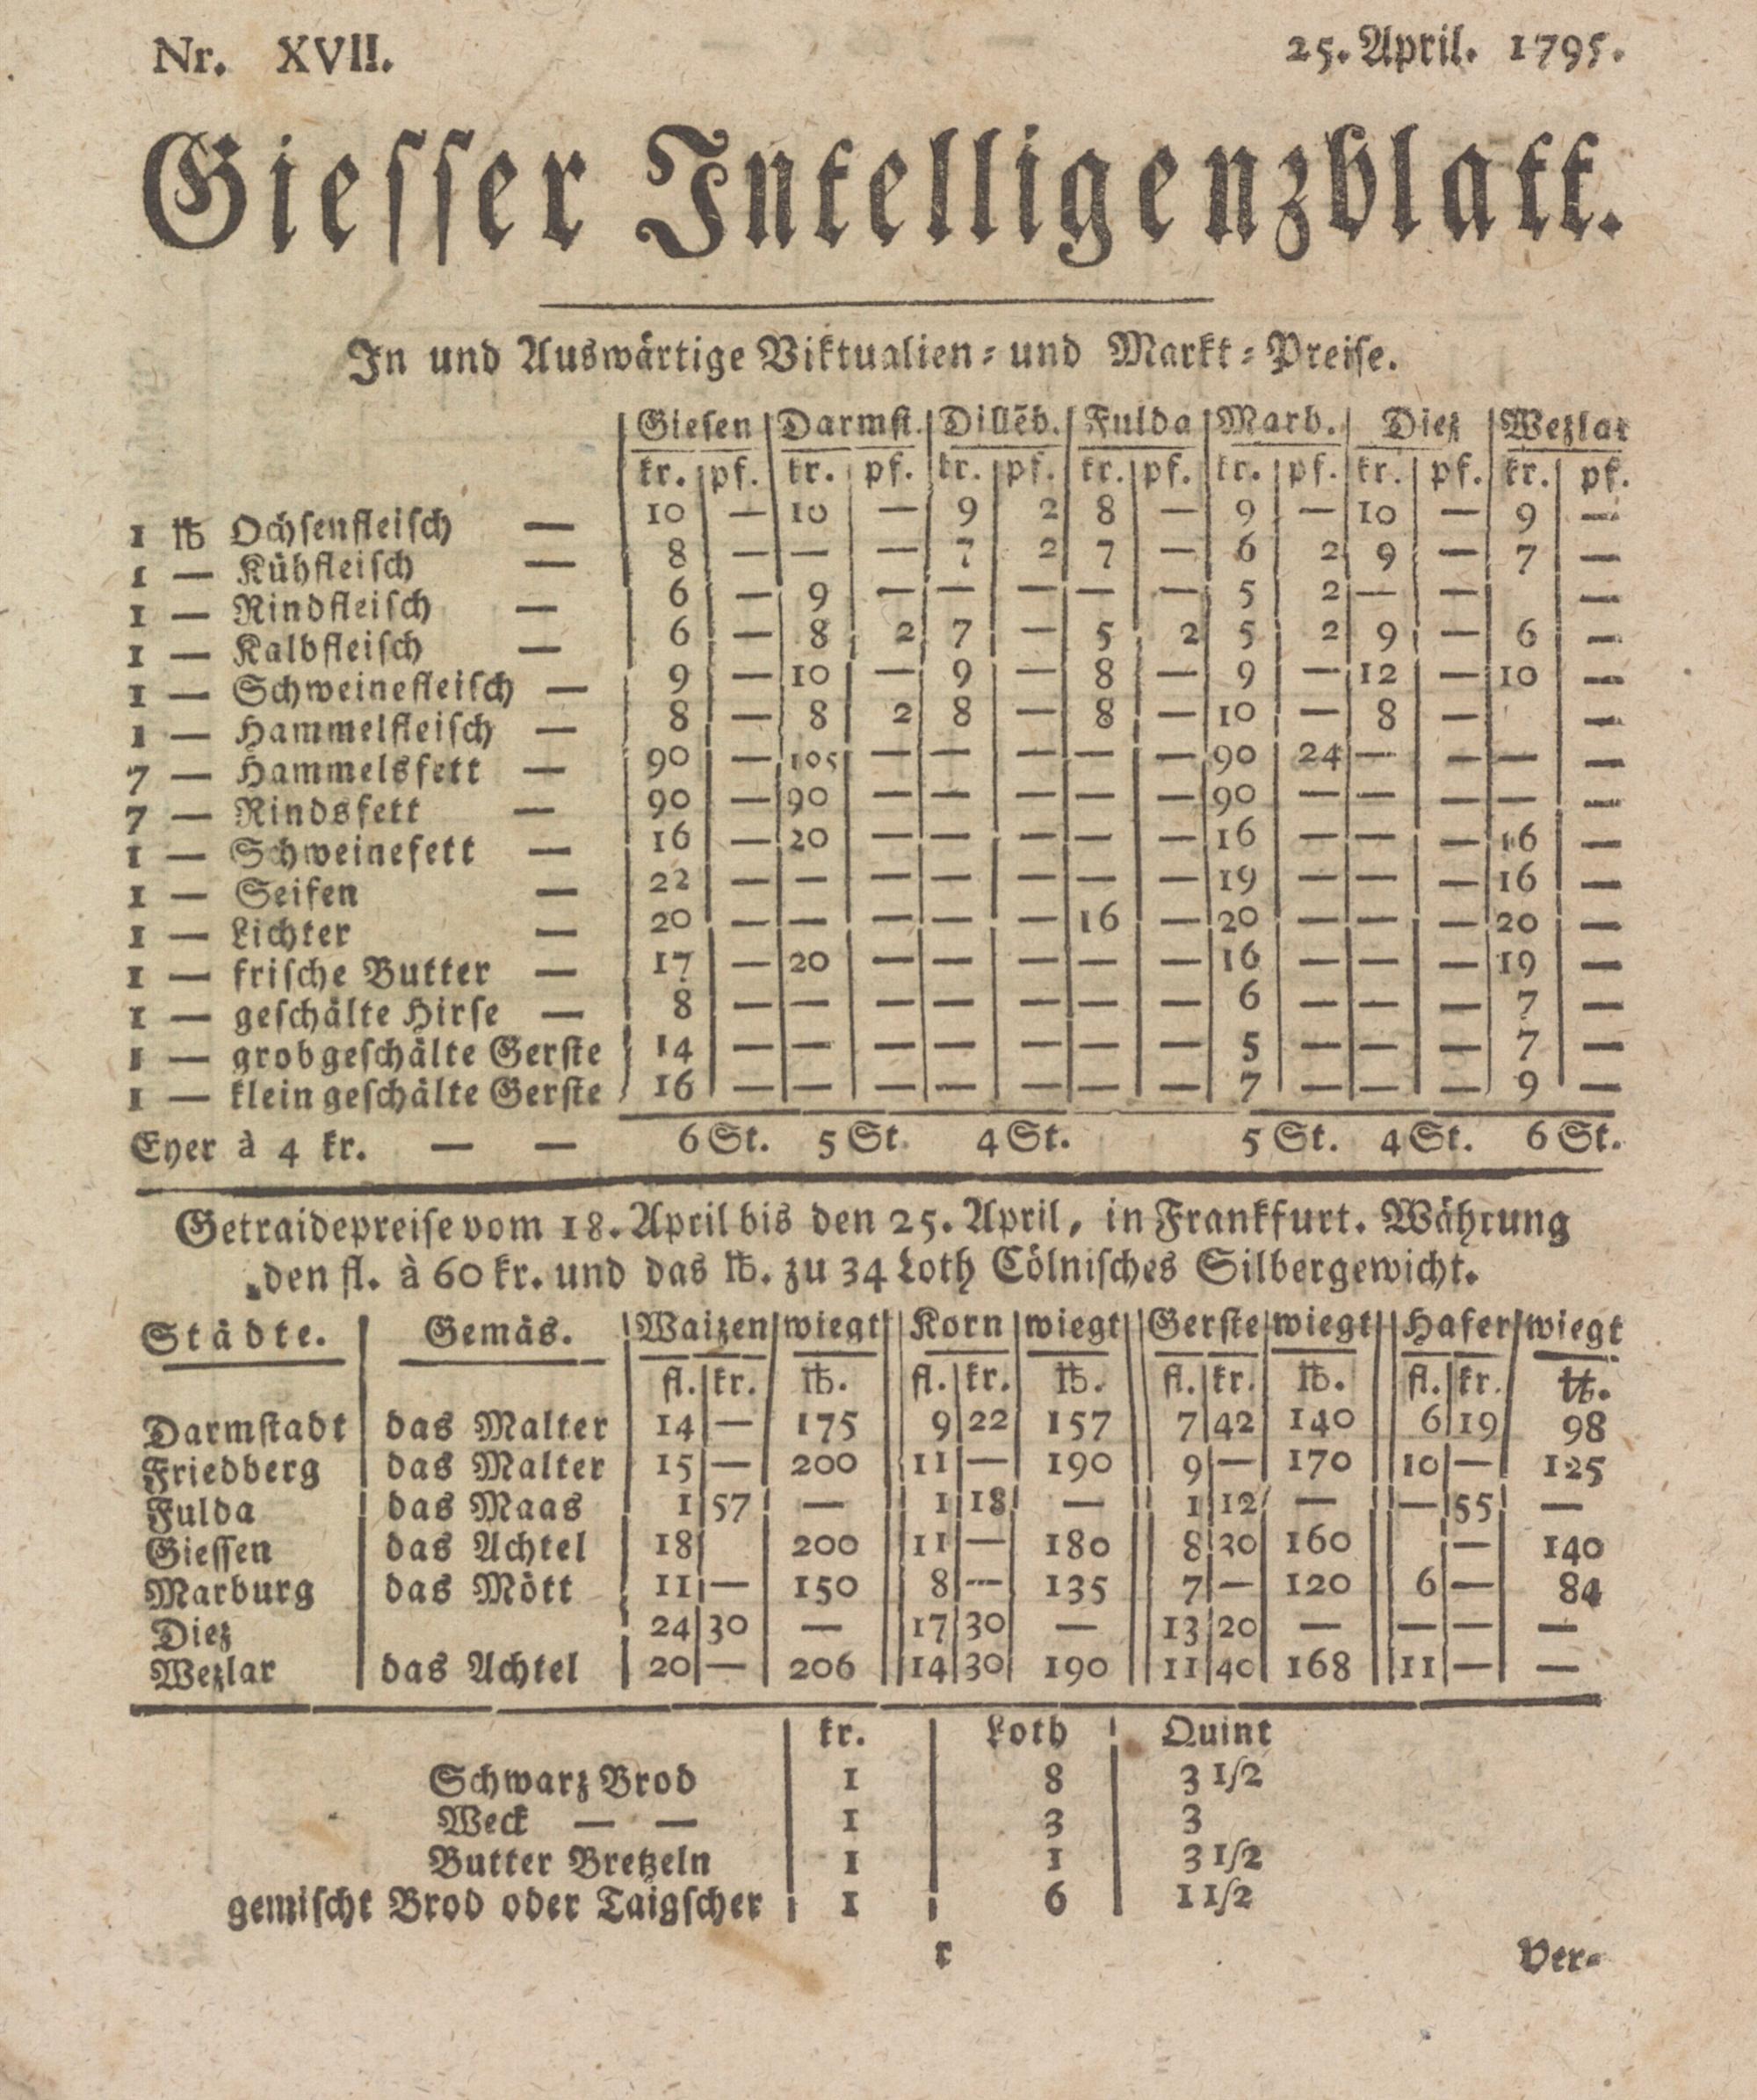 Nr. XVII. 25. April. 1795.
Giesser Intelligenzblatt.
In und Auswärtige Viktualien- und Markt-Preise.
Giesen | Darmst. | Dillēb. | Fulda | Marb. | Diez | Wezlar
kr. | pf. | kr. | pf. | kr. | pf. | kr. | pf. | kr. | pf. | kr. | pf. | kr. | pf.
1 ℔ Ochsenfleisch — 10 | — | 10 | — | 9 | 2 | 8 | — | 9 | — | 10 | — | 9 | —
1 — Kühfleisch — 8 | — | — | — | 7 | 2 | 7 | — | 6 | 2 | 9 | — | 7 | —
1 — Rindfleisch — 6 | — | 9 | — | — | — | — | — | 5 | 2 | — | — | | —
1 — Kalbfleisch — 6 | — | 8 | 2 | 7 | — | 5 | 2 | 5 | 2 | 9 | — | 6 | —
1 — Schweinefleisch — 9 | — | 10 | — | 9 | — | 8 | — | 9 | — | 12 | — | 10 | —
1 — Hammelfleisch — 8 | — | 8 | 2 | 8 | — | 8 | — | 10 | — | 8 | — | | —
7 — Hammelsfett — 90 | — | 105 | — | — | — | — | — | 90 | 24 | — | — | — | —
7 — Rindsfett — 90 | — | 90 | — | — | — | — | — | 90 | — | — | — | — | —
1 — Schweinefett — 16 | — | 20 | — | — | — | — | — | 16 | — | — | — | 16 | —
1 — Seifen — 22 | — | — | — | — | — | — | — | 19 | — | — | — | 16 | —
1 — Lichter — 20 | — | — | — | — | — | 16 | — | 20 | — | — | — | 20 | —
1 — frische Butter — 17 | — | 20 | — | — | — | — | — | 16 | — | — | — | 19 | —
1 — geschälte Hirse — 8 | — | — | — | — | — | — | — | 6 | — | — | — | 7 | —
1 — grob geschälte Gerste 14 | — | — | — | — | — | — | — | 5 | — | — | — | 7 | —
1 — klein geschälte Gerste 16 | — | — | — | — | — | — | — | 7 | — | — | — | 9 | —
Eyer à 4 kr. — — 6 St. 5 St. 4 St. 5 St. 4 St. 6 St.
Getraidepreise vom 18. April bis den 25. April, in Frankfurt. Währung
den fl. à 60 kr. und das ℔. zu 34 Loth Cölnisches Silbergewicht.
Städte. | Gemäs. | Waizen | wiegt | Korn | wiegt | Gerste | wiegt | Hafer | wiegt
fl. | kr. | ℔. | fl. | kr. | ℔. | fl. | kr. | ℔. | fl. | kr. | ℔.
Darmstadt | das Malter | 14 | — | 175 | 9 | 22 | 157 | 7 | 42 | 140 | 6 | 19 | 98
Friedberg | das Malter | 15 | — | 200 | 11 | — | 190 | 9 | — | 170 | 10 | — | 125
Fulda | das Maas | 1 | 57 | — | 1 | 18 | — | 1 | 12 | — | — | 55 | —
Giessen | das Achtel | 18 | | 200 | 11 | — | 180 | 8 | 30 | 160 | | — | 140
Marburg | das Mött | 11 | — | 150 | 8 | — | 135 | 7 | — | 120 | 6 | — | 84
Diez | | 24 | 30 | — | 17 | 30 | — | 13 | 20 | — | — | — | —
Wezlar | das Achtel | 20 | — | 206 | 14 | 30 | 190 | 11 | 40 | 168 | 11 | — | —
kr. | Loth | Quint
Schwarz Brod | 1 | 8 | 3 1/2
Weck — — | 1 | 3 | 3
Butter Bretzeln | 1 | 1 | 3 1/2
gemischt Brod oder Taigscher | 1 | 6 | 1 1/2
r Ver-